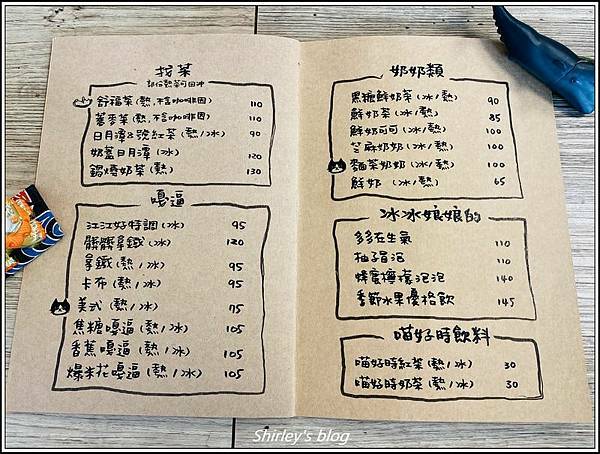 找茶
部份熱茶可回沖
舒福茶(熱,不含咖啡因) 110
蕎麥茶(熱,不含咖啡因) 110
日月潭8號紅茶(熱/冰) 90
奶蓋日月潭(冰) 120
鍋煙奶茶(熱) 130
嘎逼
江江好特調(冰) 95
髒髒拿鐵(冰) 120
拿鐵(熱/冰) 95
卡布(熱/冰) 95
美式(熱/冰) 75
焦糖嘎逼(熱/冰) 105
香蕉嘎逼(熱/冰) 105
爆米花嘎逼(熱/冰) 105
奶奶類
黑糖鮮奶茶(冰/熱) 90
鮮奶茶(冰/熱) 85
鮮奶可可(冰/熱) 100
芝麻奶奶(冰/熱) 100
麵茶奶奶(冰/熱) 100
鮮奶(冰/熱) 65
冰冰娘娘的
多多在生氣 110
柚子冒泡 110
蜂蜜檸檬泡泡 140
季節水果優格飲 145
喵好時飲料
喵好時紅茶(熱/冰) 30
喵好時奶茶(熱/冰) 30
Shirley's blog